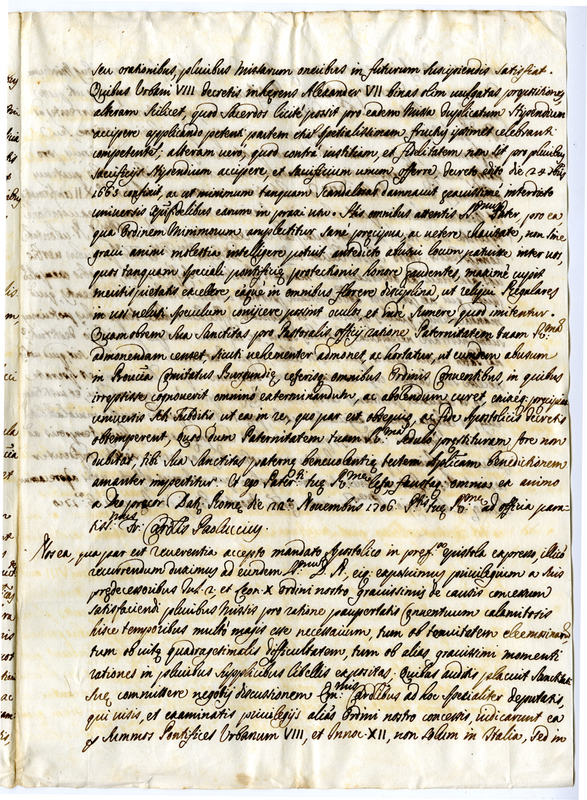 seu orationibus, pluribus Missarum oneribus in futurum suscipiendis satisfiat.
Quibus Urbani VIII decretis inhęrens Alexander VII binas olim vulgatas propositiones
alteram scilicet, quod Sacerdos licitè possit pro eadem Missa duplicatum stipendium
accipere applicando petenti partem etiã specialissimam fructûs ipsimet celebranti
competentẽ; alteram verò, quod contra iustitiam, et fidelitatem non sit pro pluribus
sacrificijs stipendium accipere, et sacrificium unum offerre decreto edito die 24
1665 confixit, ac ut minimum tanquam scandalosas damnavit gravissimè interdicto
universis Christifidelibus earum in praxi usu. His omnibus attentis Pater, pro ea
qua Ordinem Minimorum amplectitur sanè pręcipua, ac vetere charitate, non sine
gravi animi molestia intelligere potuit antedicto abusui locum patere inter vos,
quos tanquam speciali pontificię protectionis honore gaudentes, maximè cupit
meritis pietatis excellere, eaque in omnibus florere disciplina, ut reliqui Regulares
in vos veluti speculum conijcere possint oculos, et inde sumere quod imitentur.
Quamobrem Sua Sanctitas pro Pastoralis officij ratione Paternitatem tuam
admonendam censet, sicut vehementer admonet, ac hortatur, ut eumdem abusum
in Provĩa Comitatus Burgundię, ceterisq; omnibus Ordinis Conventibus, in quibus
irrepsisse cognoverit omnino exterminandum, ac abolendum curet, enixèq; pręcipiat
universis sibi subditis ut ea in re, quo par est obsequio, ac fide Apostolicis decretis
obtemperent, Quod dum Paternitatem tuam sedulò pręstituram fore non
dubitat, tibi Sua Sanctitas paternę benevolentię testem Applicam benedictionem
amanter impertitur. Et ego Paterti tuę fausta omnia ex animo
a Deo precor. Datũ Romę die 22 Novembris 1706. tuę ad officia para-
tissmus Cardlis Paoluccius.
Nos ea, qua par est reverentia accepto mandato Apostolico in epistola expresso, illicò
recurrendum duximus ad eundem D. N., eiq; exposuimus privilegium a suis
prędecessoribus Jul. 2. et Leon. X Ordini nostro gravissimis de causis concessum
satisfaciendi pluribus Missis pro ratione paupertatis Conventuum calamitosis
hisce temporibus multò magis esse necessarium, tum ob tenuitatem eleemosinarũ
tum ob vitę quadragesimalis difficultatem, tum ob alias gravissimi momenti
rationes in pluribus supplicibus libellis expositas: Quibus auditis placuit Sanctitati
Suę committere negotij discussionem Cardlibus ad hoc specialiter deputatis,
qui visis, et examinatis privilegijs alias Ordini nostro concessis, iudicarunt ea
Summos Pontifices Urbanum VIII, et Innoc. XII, non solum in Italia, sed in